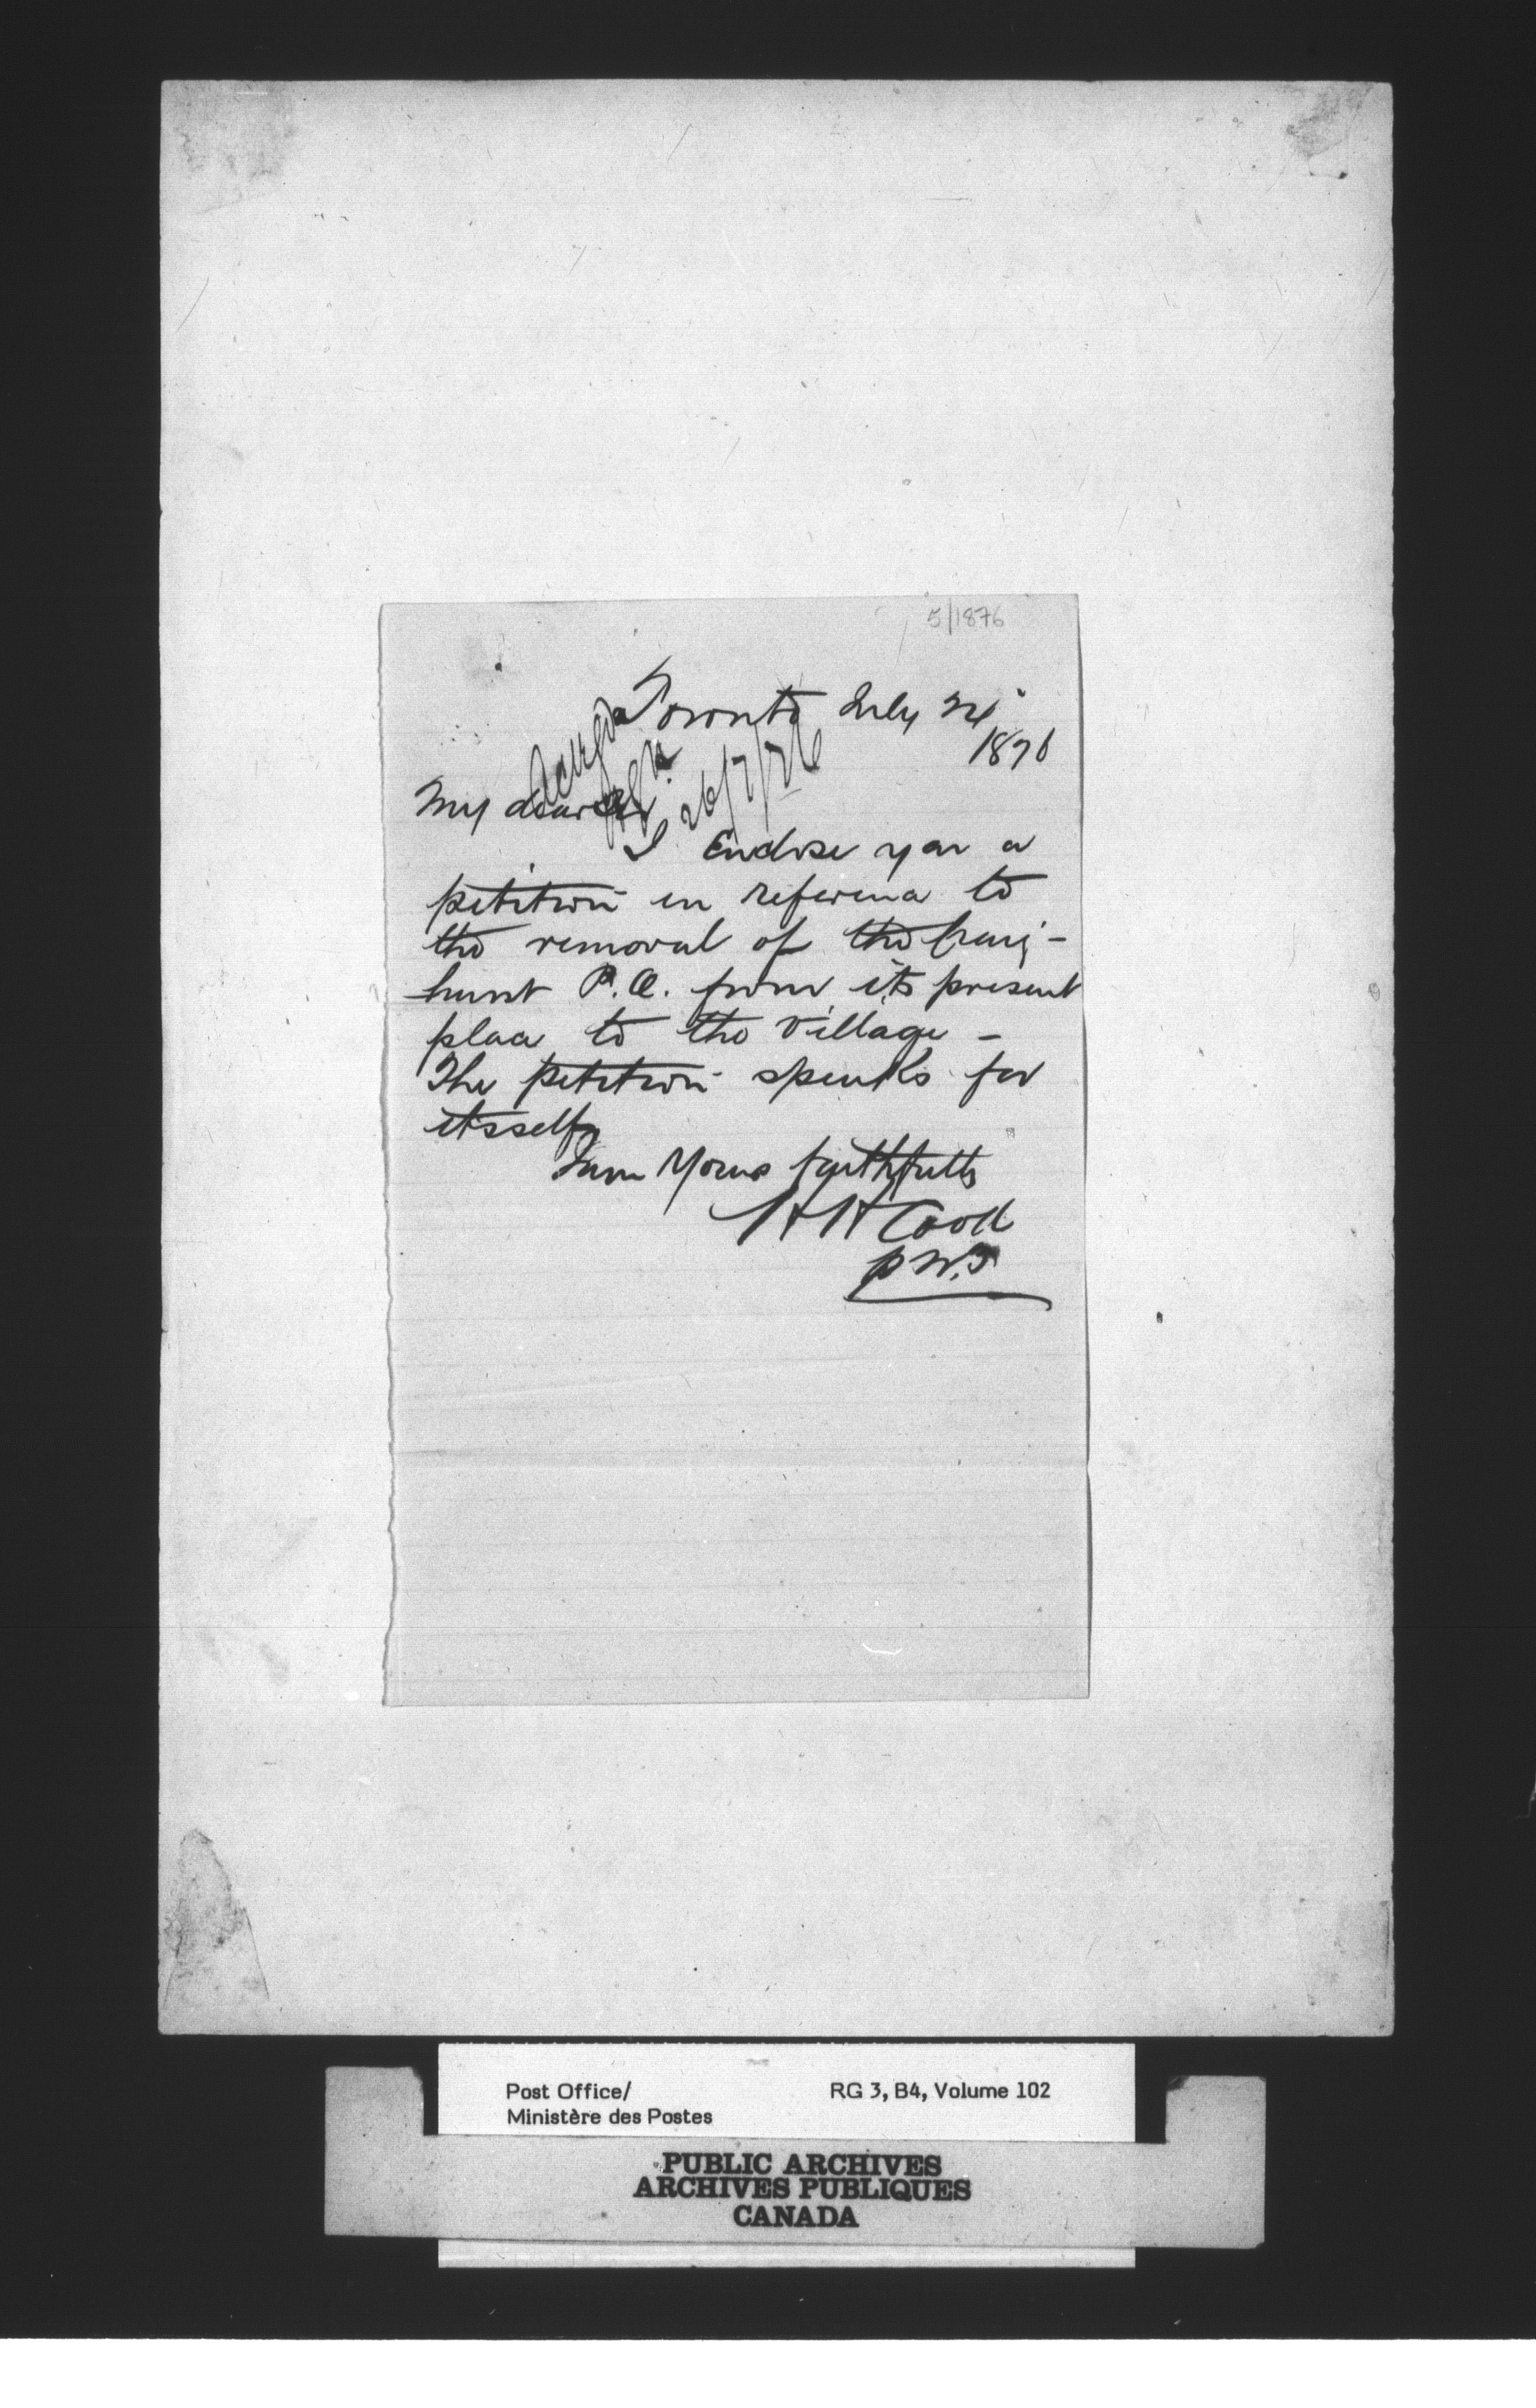 5/1876
Toronto July 24
1876
Ackgd
26/7/76
My dear Sir
I Enclose you a
petition in reference to
the removal of the Craig-
hurst P.O. from its present
place to the Village -
The petition speaks for
itsself
I am Yours faithfully
H H Cook
p W.T
Post Office/
Ministère des Postes
RG 3, B4, Volume 102
PUBLIC ARCHIVES
ARCHIVES PUBLIQUES
CANADA